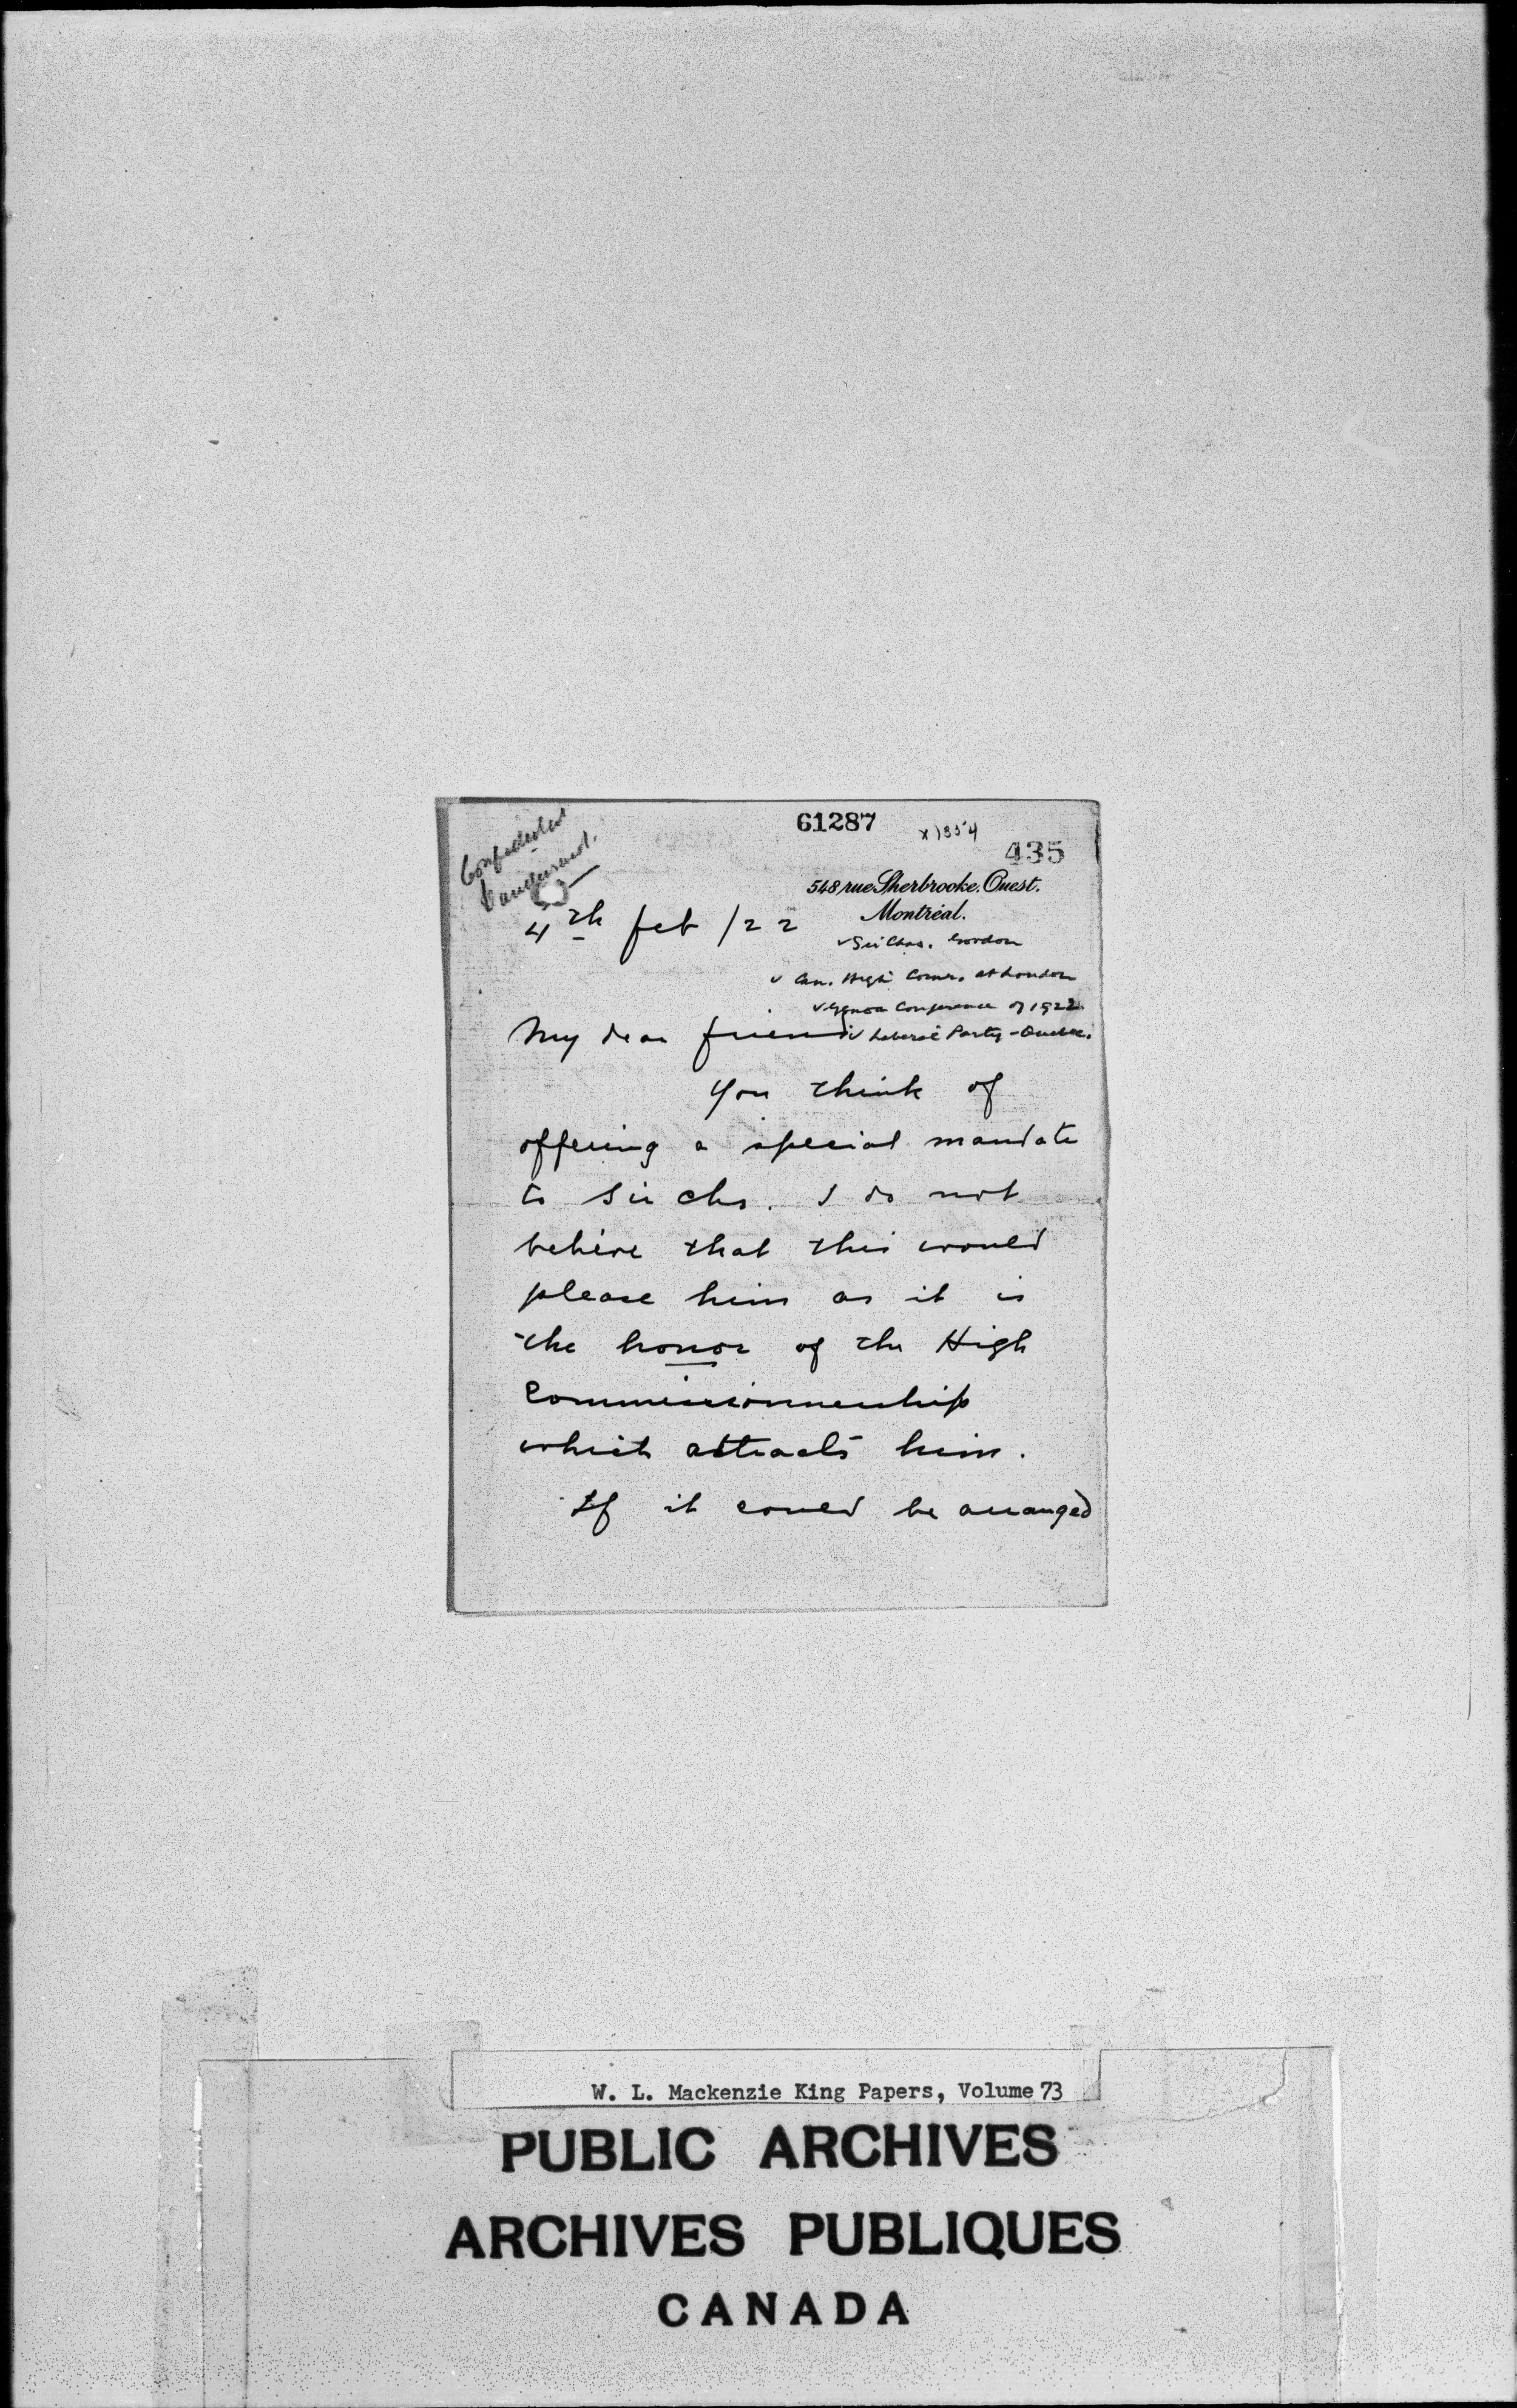 61287
435
548 rue Sherbrooke. Ouest.
Montréal.
4th feb /22
✓ Sir Chas. Gordon
✓ Can. High Comr. at London
✓ Genoa Conference of 1922.
✓ Liberal Party - Quebec.
My dear friend
You think of
offering a special mandate
to Sir Chs. I do not
believe that this would
please him as it is
the honor of the High
Commissionnership
which attracts him.
If it could be arranged
W. L. Mackenzie King Papers, Volume 73
PUBLIC ARCHIVES
ARCHIVES PUBLIQUES
CANADA